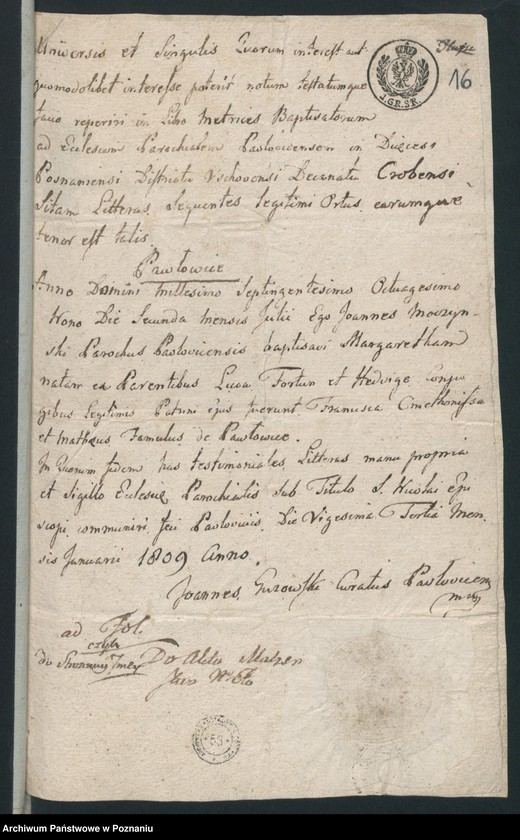 Universis et Singulis Quorum interest aut
quomodolibet interesse poterit notum testatumque
facio reperiri in Libro Metrices Baptisatorum
ad Ecclesiam Parochialem Pawlovicensem in Diæcesi
Posnaniensi Districtu Vschovensi Decanatu Crobensi
Sitam Litteras Sequentes legitimi Ortus earumque
tenor est talis.
Pawłowice
Anno Domini Millesimo Septingentesimo Octuagesimo
Nono Die Secunda Mensis Julii Ego Joannes Moczyn-
ski Parochus Pavlovicensis baptisavi Margaretham
natam ex Parentibus Luca Fortun et Hedvige Conju
gibus legitimis Patrini ejus fuerunt Francisca Cmethonissa
et Mathæus Famulus de Pawłowice.
In Quorum fidem has testimoniales Litteras manu propria
et Sigillo Ecclesiæ Parochialis sub Titulo S. Nicolai Epi
scopi communiri feci Pavloviciis Die Vigesima Tertia Men
sis Januarii 1809 Anno.
Joannes Gurowski Curatus Pavlovicen
mp
16
J.GR.SR.
ad Fol.
czyli
do
Do Aktu
53
Archiwum Państwowe w Poznaniu